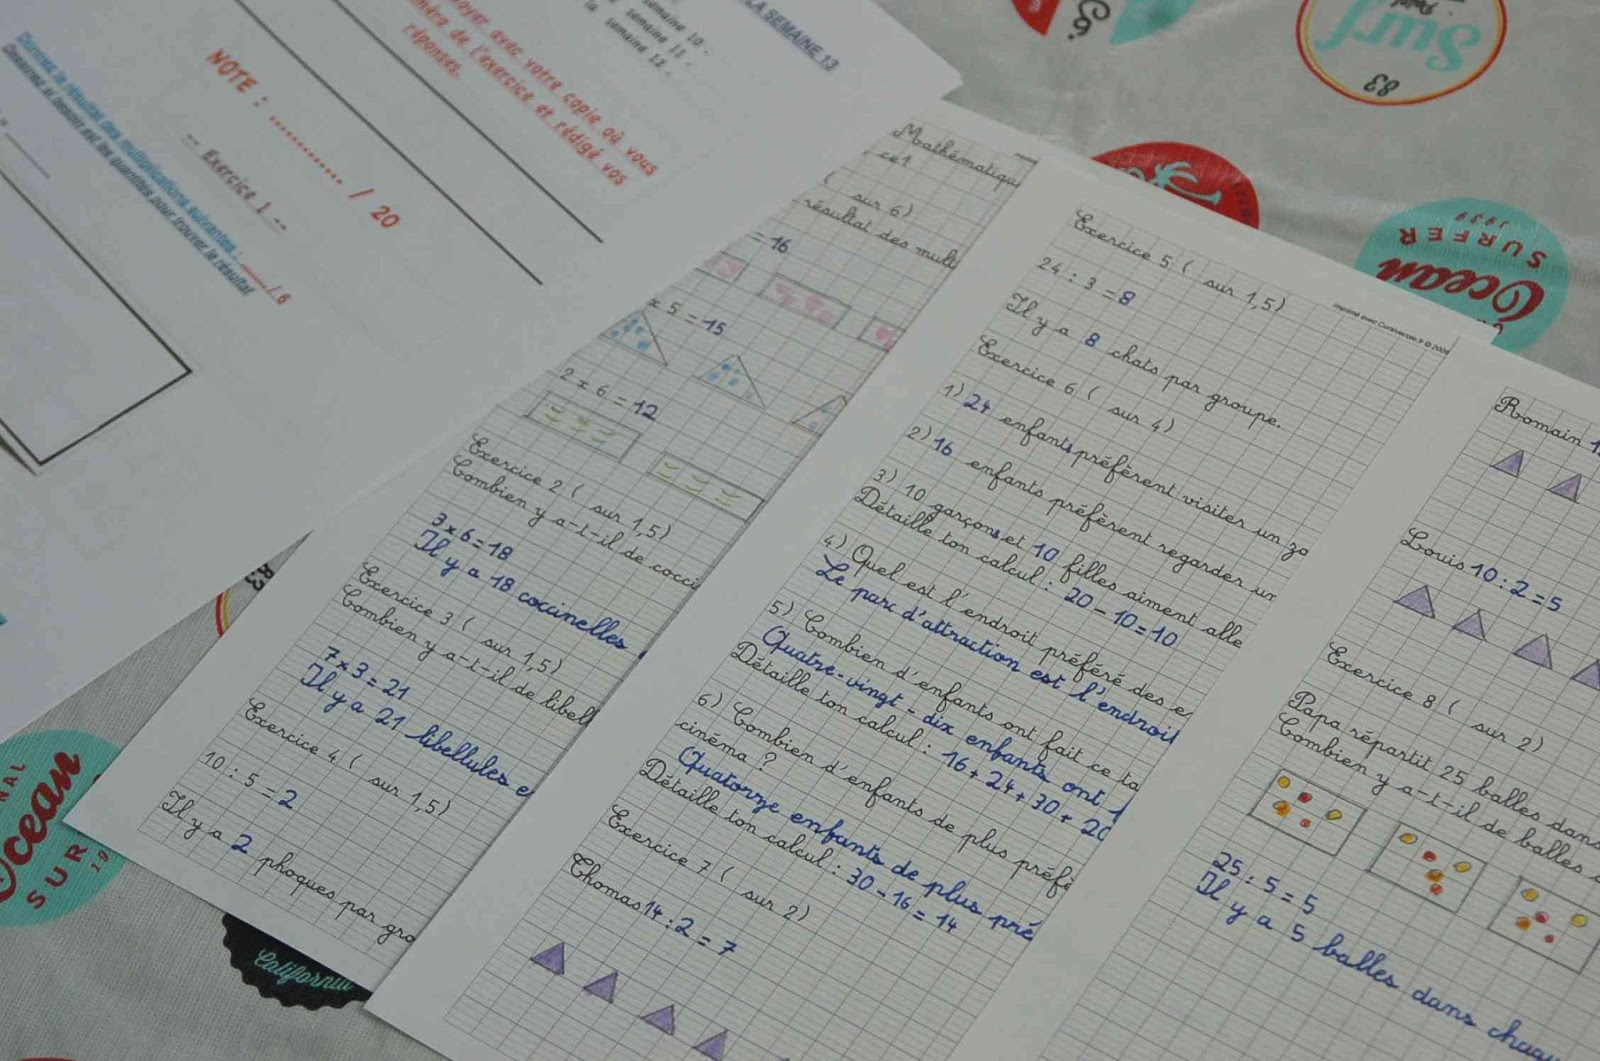 LA SEMAINE 13
semaine 10 -
semaine 11 -
la semaine 12 -
avec votre copie où vous
de l'exercice et rédigé vos
réponses.
NOTE : ............ / 20
-- Exercice 1 --
Donnez le résultat des multiplications suivantes : ....../ 6
Dessinez si besoin est les quantités pour trouver le résultat
Mathématiqu
ce1
( sur 6)
résultat des mult
= 16
x 5 = 15
2 x 6 = 12
Exercice 2 ( sur 1,5)
Combien y a-t-il de cocci
3 x 6 = 18
Il y a 18 coccinelles
Exercice 3 ( sur 1,5)
Combien y a-t-il de libell
7 x 3 = 21
Il y a 21 libellules e
Exercice 4 ( sur 1,5)
10 : 5 = 2
Il y a 2 phoques par gro
Exercice 5 ( sur 1,5)
24 : 3 = 8
Il y a 8 chats par groupe.
Exercice 6 ( sur 4)
1) 24 enfants préfèrent visiter un zo
2) 16 enfants préfèrent regarder un
3) 10 garçons et 10 filles aiment alle
Détaille ton calcul : 20 - 10 = 10
4) Quel est l'endroit préféré des e
Le parc d'attraction est l'endroit
5) Combien d'enfants ont fait ce ta
Quatre-vingt-dix enfants ont
Détaille ton calcul : 16 + 24 + 30 + 20
6) Combien d'enfants de plus préfè
cinéma ?
Quatorze enfants de plus pré
Détaille ton calcul : 30 - 16 = 14
Exercice 7 ( sur 2)
Thomas 14 : 2 = 7
Imprimé avec Cursivecole.fr © 2006
Romain 1
Louis 10 : 2 = 5
Exercice 8 ( sur 2)
Papa répartit 25 balles dans
Combien y a-t-il de balles
25 : 5 = 5
Il y a 5 balles dans chaq
Surf
83
Ocean
SURFER
1939
Ocean
SUR
19
California
83